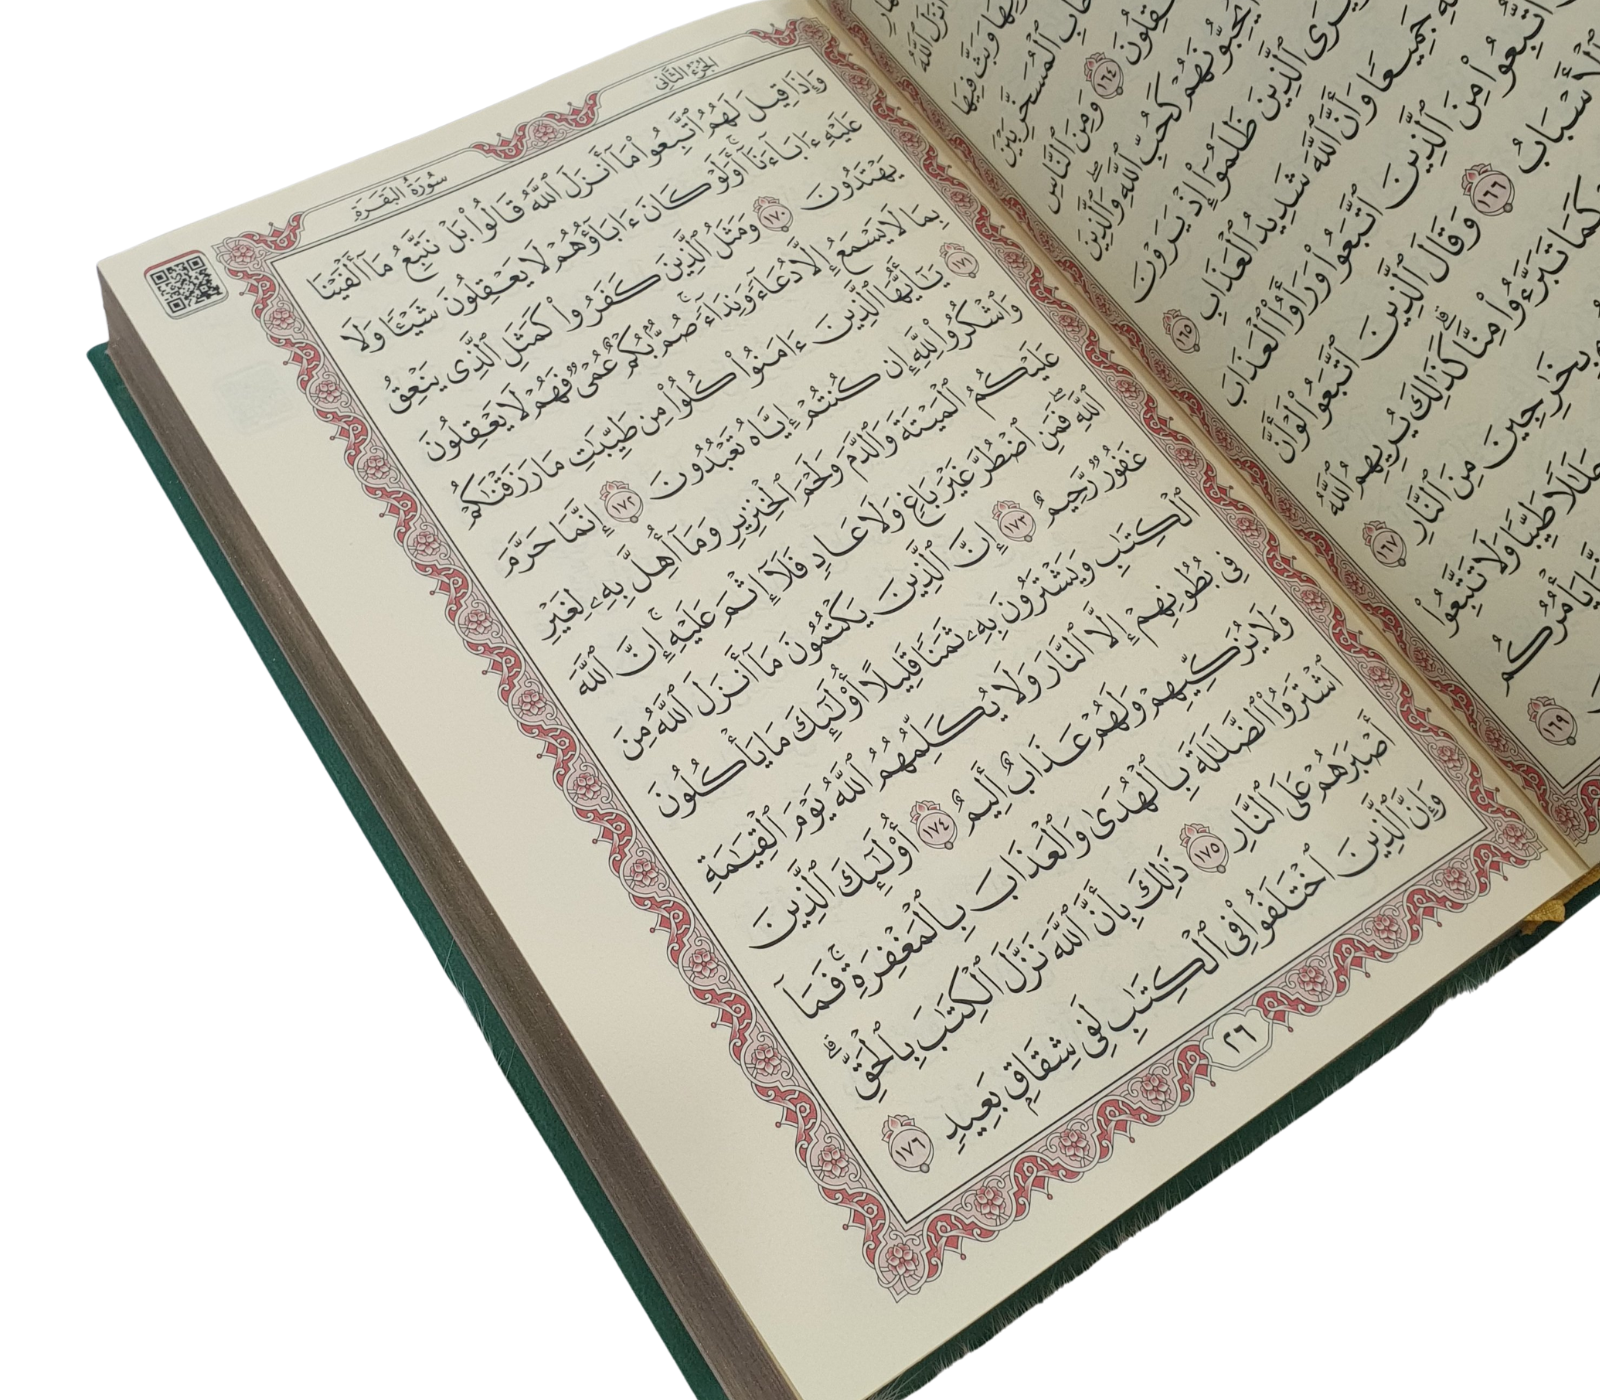 أَنزَلَ ٱللَّهُ
وَبَثَّ فِيهَا
ٱلْمُسَخَّرِ بَيْنَ
١٦٤ وَمِنَ ٱلنَّاسِ
يُحِبُّونَهُمْ كَحُبِّ ٱللَّهِۖ وَٱلَّذِينَ
ٱلَّذِينَ ظَلَمُوٓا۟ إِذْ يَرَوْنَ
جَمِيعًا وَأَنَّ ٱللَّهَ شَدِيدُ ٱلْعَذَابِ ١٦٥
ٱتُّبِعُوا۟ مِنَ ٱلَّذِينَ ٱتَّبَعُوا۟ وَرَأَوُا۟ ٱلْعَذَابَ
ٱلْأَسْبَابُ ١٦٦ وَقَالَ ٱلَّذِينَ ٱتَّبَعُوا۟ لَوْ أَنَّ
كَمَا تَبَرَّءُوا۟ مِنَّاۗ كَذَٰلِكَ يُرِيهِمُ ٱللَّهُ
بِخَٰرِجِينَ مِنَ ٱلنَّارِ ١٦٧
حَلَٰلًا طَيِّبًا وَلَا تَتَّبِعُوا۟
يَأْمُرُكُم
١٦٩
الجُزْءُ الثَّانِى
سُورَةُ البَقَرَةِ
وَإِذَا قِيلَ لَهُمُ ٱتَّبِعُوا۟ مَآ أَنزَلَ ٱللَّهُ قَالُوا۟ بَلْ نَتَّبِعُ مَآ أَلْفَيْنَا
عَلَيْهِ ءَابَآءَنَآۚ أَوَلَوْ كَانَ ءَابَآؤُهُمْ لَا يَعْقِلُونَ شَيْـًٔا وَلَا
يَهْتَدُونَ ١٧٠ وَمَثَلُ ٱلَّذِينَ كَفَرُوا۟ كَمَثَلِ ٱلَّذِى يَنْعِقُ
بِمَا لَا يَسْمَعُ إِلَّا دُعَآءً وَنِدَآءًۚ صُمٌّۢ بُكْمٌ عُمْىٌ فَهُمْ لَا يَعْقِلُونَ
١٧١ يَٰٓأَيُّهَا ٱلَّذِينَ ءَامَنُوا۟ كُلُوا۟ مِن طَيِّبَٰتِ مَا رَزَقْنَٰكُمْ
وَٱشْكُرُوا۟ لِلَّهِ إِن كُنتُمْ إِيَّاهُ تَعْبُدُونَ ١٧٢ إِنَّمَا حَرَّمَ
عَلَيْكُمُ ٱلْمَيْتَةَ وَٱلدَّمَ وَلَحْمَ ٱلْخِنزِيرِ وَمَآ أُهِلَّ بِهِۦ لِغَيْرِ
ٱللَّهِۖ فَمَنِ ٱضْطُرَّ غَيْرَ بَاغٍ وَلَا عَادٍ فَلَآ إِثْمَ عَلَيْهِۚ إِنَّ ٱللَّهَ
غَفُورٌ رَّحِيمٌ ١٧٣ إِنَّ ٱلَّذِينَ يَكْتُمُونَ مَآ أَنزَلَ ٱللَّهُ مِنَ
ٱلْكِتَٰبِ وَيَشْتَرُونَ بِهِۦ ثَمَنًا قَلِيلًا أُو۟لَٰٓئِكَ مَا يَأْكُلُونَ
فِى بُطُونِهِمْ إِلَّا ٱلنَّارَ وَلَا يُكَلِّمُهُمُ ٱللَّهُ يَوْمَ ٱلْقِيَٰمَةِ
وَلَا يُزَكِّيهِمْ وَلَهُمْ عَذَابٌ أَلِيمٌ ١٧٤ أُو۟لَٰٓئِكَ ٱلَّذِينَ
ٱشْتَرَوُا۟ ٱلضَّلَٰلَةَ بِٱلْهُدَىٰ وَٱلْعَذَابَ بِٱلْمَغْفِرَةِۚ فَمَآ
أَصْبَرَهُمْ عَلَى ٱلنَّارِ ١٧٥ ذَٰلِكَ بِأَنَّ ٱللَّهَ نَزَّلَ ٱلْكِتَٰبَ بِٱلْحَقِّۗ
وَإِنَّ ٱلَّذِينَ ٱخْتَلَفُوا۟ فِى ٱلْكِتَٰبِ لَفِى شِقَاقٍۭ بَعِيدٍ ١٧٦
٢٦